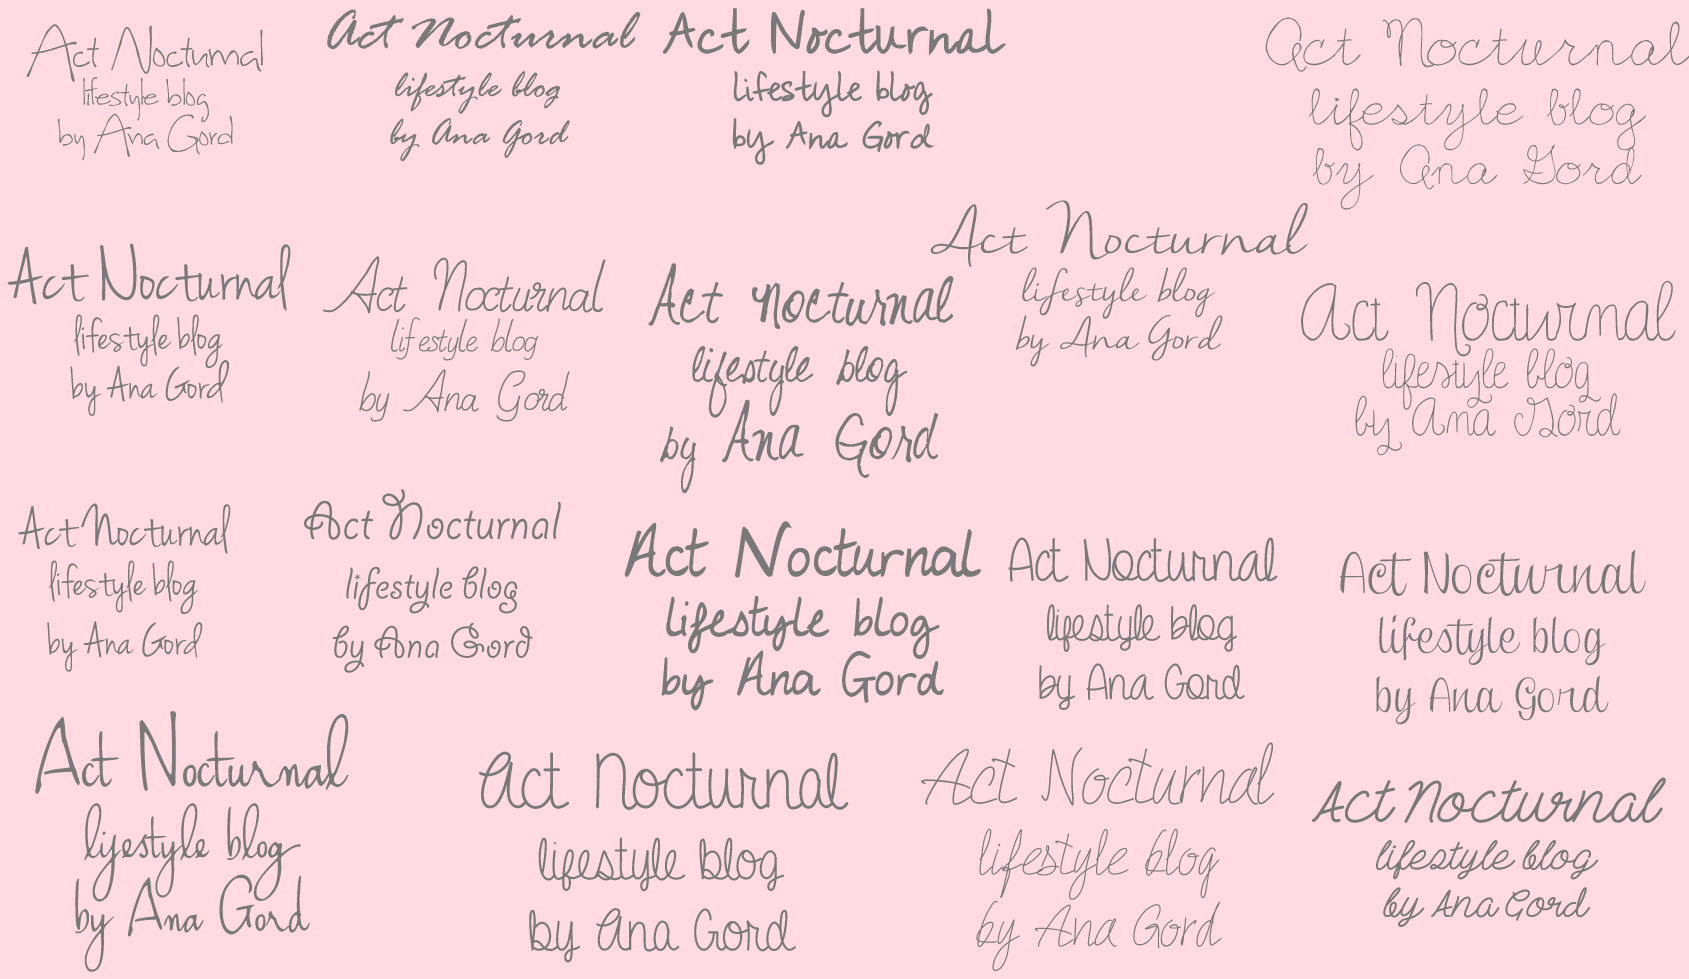 Act Nocturnal
lifestyle blog
by Ana Gord
Act Nocturnal
lifestyle blog
by Ana Gord
Act Nocturnal
lifestyle blog
by Ana Gord
Act Nocturnal
lifestyle blog
by Ana Gord
Act Nocturnal
lifestyle blog
by Ana Gord
Act Nocturnal
lifestyle blog
by Ana Gord
Act Nocturnal
lifestyle blog
by Ana Gord
Act Nocturnal
lifestyle blog
by Ana Gord
Act Nocturnal
lifestyle blog
by Ana Gord
Act Nocturnal
lifestyle blog
by Ana Gord
Act Nocturnal
lifestyle blog
by Ana Gord
Act Nocturnal
lifestyle blog
by Ana Gord
Act Nocturnal
lifestyle blog
by Ana Gord
Act Nocturnal
lifestyle blog
by Ana Gord
Act Nocturnal
lifestyle blog
by Ana Gord
Act Nocturnal
lifestyle blog
by Ana Gord
Act Nocturnal
lifestyle blog
by Ana Gord
Act Nocturnal
lifestyle blog
by Ana Gord